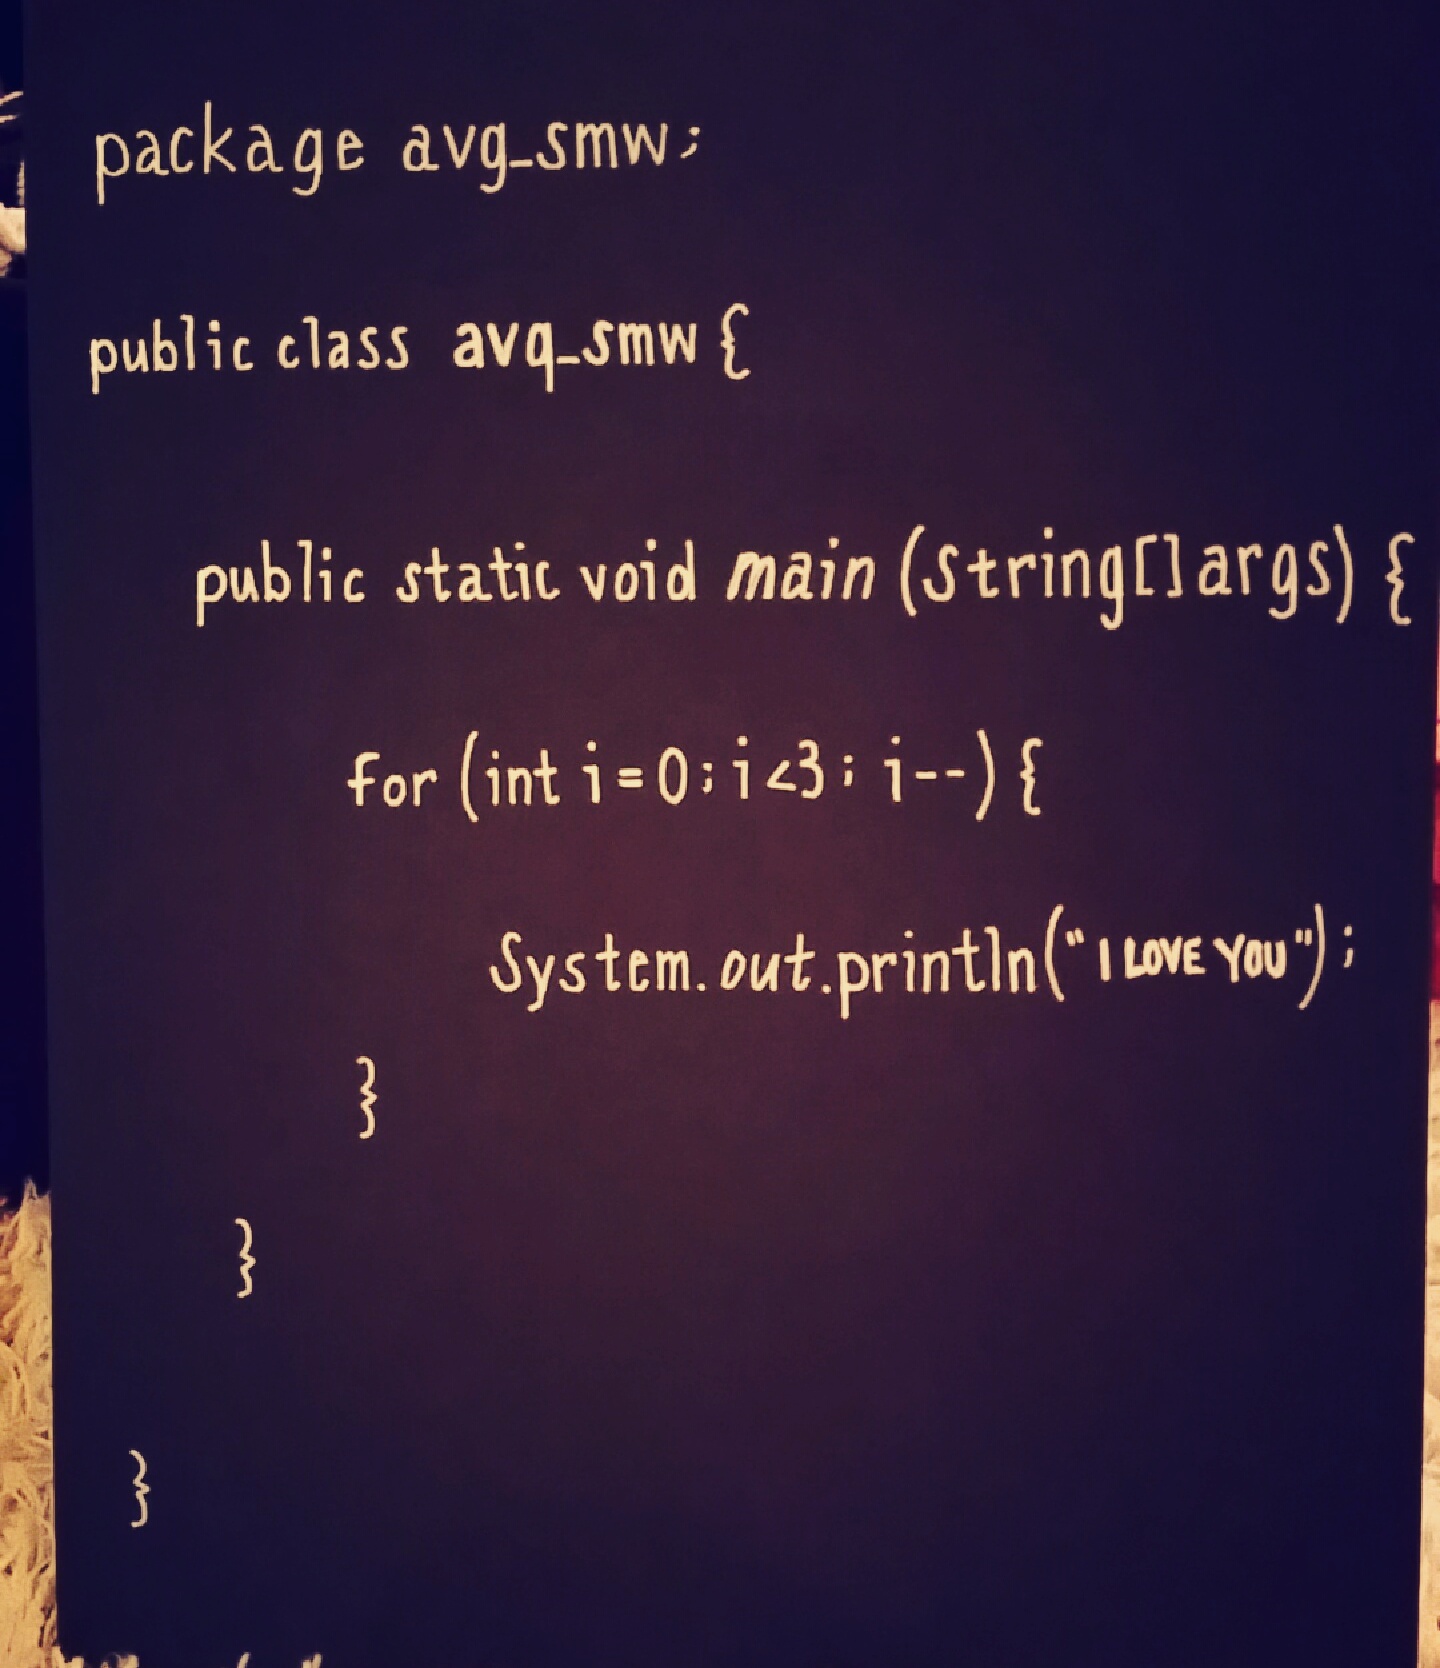 package avg_smw;
public class avq_smw {
public static void main (String[] args) {
for (int i = 0; i < 3; i--) {
System.out.println(" I LOVE YOU");
}
}
}